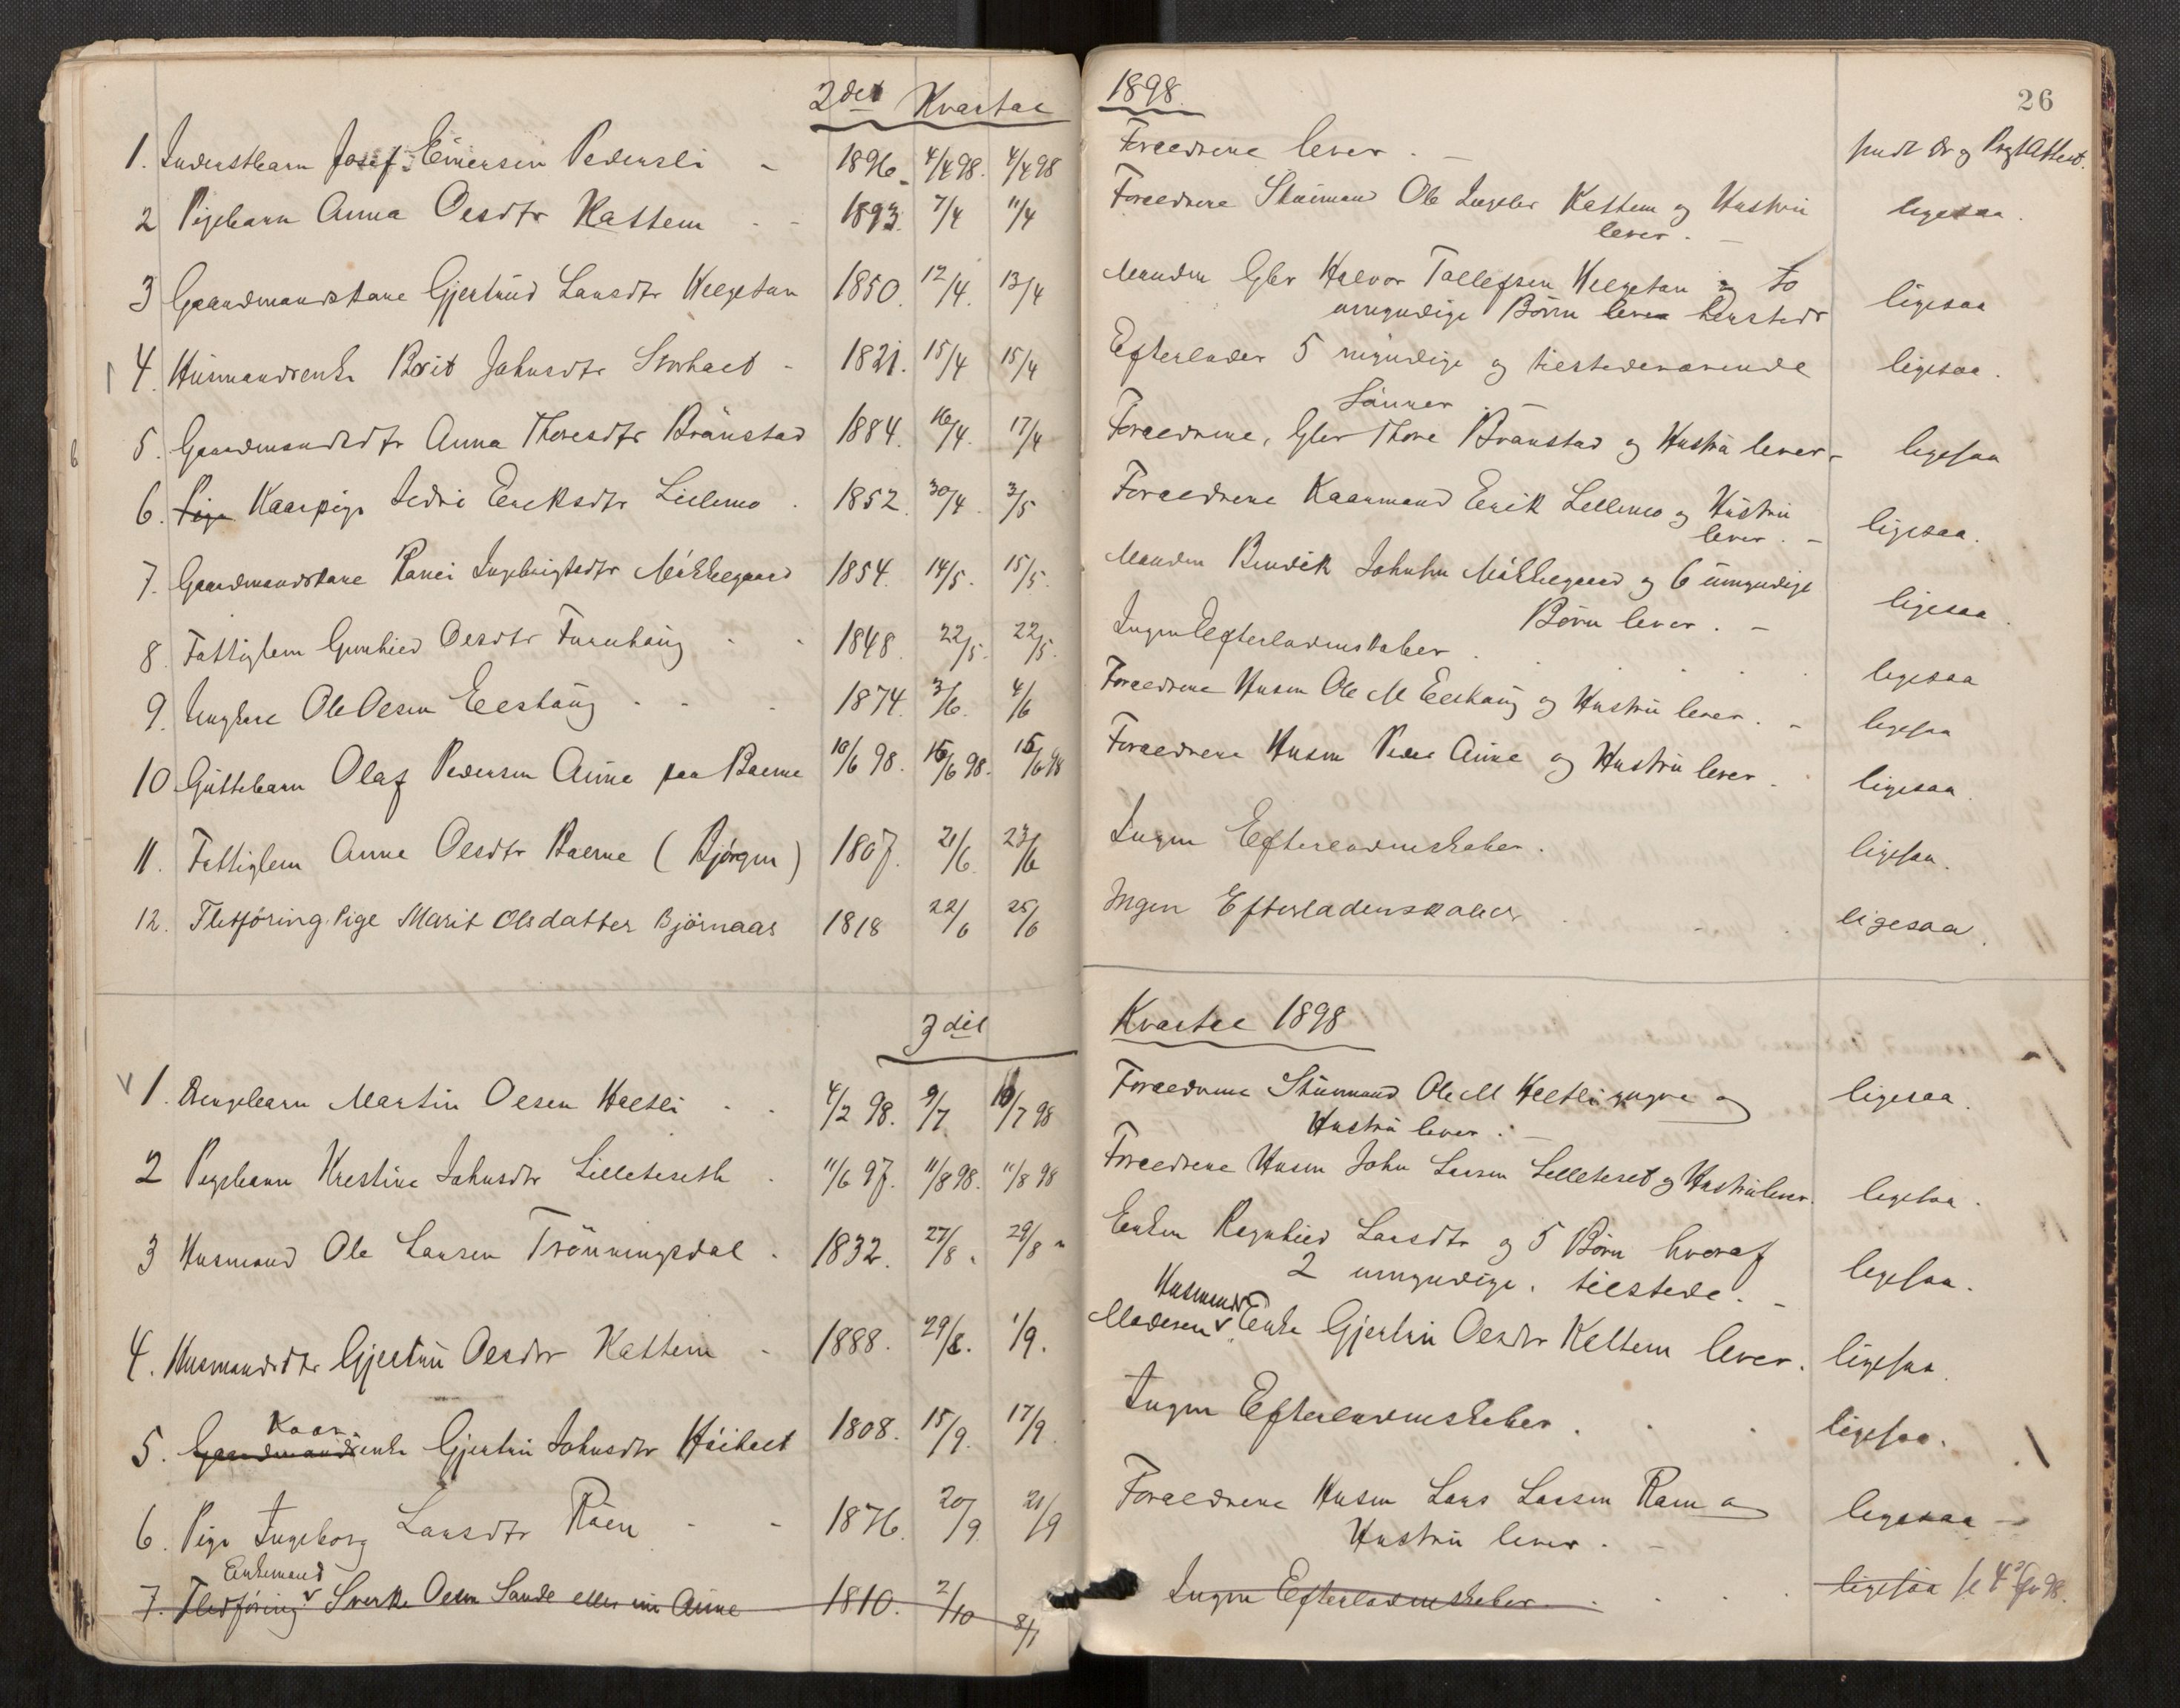 2det Kvartal 1898.
26
1. Inderstbarn Josef Einersen Pedersli - 1896. 4/4 98. 4/4 98 Forældrene lever. -
2 Pigebarn Anna Olsdtr Kattem - - 1893. 7/4 11/4 Forældrene Stuemand Ole Kattem og Hustru ligesaa.
lever. -
3 Gaardmandskone Gjertrud Larsdtr Helgetun 1850. 12/4. 13/4 Manden Gbr Halvor Tollefsen Helgetun og to ligesaa
umyndige Børn lever hersteds
4. Husmandsenke Brit Johnsdtr Storholt - 1821. 15/4 15/4 Efterlader 5 myndige og tilstedeværende ligesaa.
Sønner. -
5. Gaardmandsdtr Anna Thoresdtr Brånstad 1884. 16/4. 17/4 Forældrene, Gbr Thore Brånstad og Hustru lever - ligesaa
6. Pige Kaarpige Sedri Eriksdtr Lillemo. 1852. 30/4. 3/5 Forældrene Kaarmand Erik Lillemo og Hustru ligesaa.
lever. -
7. Gaardmandskone Ranei Ingebrigtsdtr Måkkelgaard 1854. 14/5. 15/5. Manden Bendik Johnsen Måkkelgaard og 6 umyndige ligesaa.
Børn lever. -
8. Fattiglem Gunhild Olsdtr Furuhaug - 1848. 22/5. 22/5. Ingen Efterladenskaber. ligesaa
9. Ungkarl Ole Olsen Elshaug - - 1874. 3/6. 4/6 Forældrene Husm Ole M Elshaug og Hustru lever. - ligesaa
10 Guttebarn Olaf Pedersen Aune paa Balme 10/6 98. 15/6 98. 15/6 98 Forældrene Husm Peder Aune og Hustru lever. ligesaa.
11. Fattiglem Anne Olsdtr Balme (Bjørgen) 1807. 21/6. 23/6 Ingen Efterladenskaber. ligesaa.
12. Fletføring Pige Marit Olsdatter Bjørnaas 1818 22/6 25/6 Ingen Efterladenskaber. ligesaa.
3die Kvartal 1898
1. Drengebarn Martin Olsen Holtli - - 4/2 98. 9/7 10/7 98 Forældrene Stuemand Ole M Holtli yngre og ligesaa.
Hustru lever. -
2 Pigebarn Kristine Johnsdtr Lilleteseth. 11/6 97. 11/8 98. 11/8 98 Forældrene Husm John Larsen Lilleteset og Hustru lever. ligesaa.
3 Husmand Ole Larsen Trönningsdal. 1832. 27/8 " 29/8 " Enken Ragnhild Larsdtr og 5 Børn hvoraf ligesaa.
2 umyndige. tilstede. -
Husmands
4. Husmandsdtr Gjertrui Olsdtr Kattem - 1888. 29/8. 1/9. Moderen v Enke Gjertrui Olsdtr Kattem lever. ligesaa.
Kaar
5. Gaardmandsenke Gjertrui Johnsdtr Håiholt 1808. 15/9. 17/9. Ingen Efterladenskaber. ligesaa.
6. Pige Ingeborg Larsdtr Råen - - 1876. 20/9. 21/9 Forældrene Husm Lars Larsen Raen og ligesaa -
Hustru lever. -
Enkemand
7. Fledføring v Sverke Olsen Sande eller nu Aune 1810. 2/10 8/1 Ingen Efterladenskaber. ligesaa se 4de Kv 98.